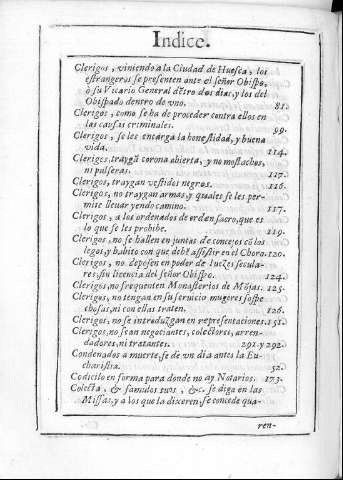 Indice.
Clerigos, viniendo a la Ciudad de Huesca, los
estrangeros se presenten ante el señor Obispo,
ò su Vicario General dētro dos dias, y los del
Obispado dentro de vno. 81.
Clerigos, como se ha de proceder contra ellos en
las causas criminales. 99.
Clerigos, se les encarga la honestidad, y buena
vida. 114.
Clerigos, traygā corona abierta, y no mostachos,
ni pulseras. 117.
Clerigos, traygan vestidos negros. 116.
Clerigos, no traygan armas, y quales se les per-
mite lleuar yendo camino. 117.
Clerigos, a los ordenados de orden sacro, que es
lo que se les prohibe. 119.
Clerigos, no se hallen en juntas de concejos cō los
legos, y habito con que debē assistir en el Choro. 120.
Clerigos, no deposen en poder de Iuezes secula-
res, sin licencia del señor Obispo. 124.
Clerigos, no frequenten Monasterios de Mōjas. 125.
Clerigos, no tengan en su seruicio mugeres sospe
chosas, ni con ellas traten. 126.
Clerigos, no se introduzgan en representaciones. 151.
Clerigos, no sean negociantes, colectores, arren-
dadores, ni tratantes. 291. y 292.
Condenados a muerte, se dē vn dia antes la Eu-
charistia. 52.
Codicilo en forma para donde no ay Notarios. 173.
Colecta, & famulos tuos, &c. se diga en las
Missas, y a los que la dixeren, se concede qua-
ren-